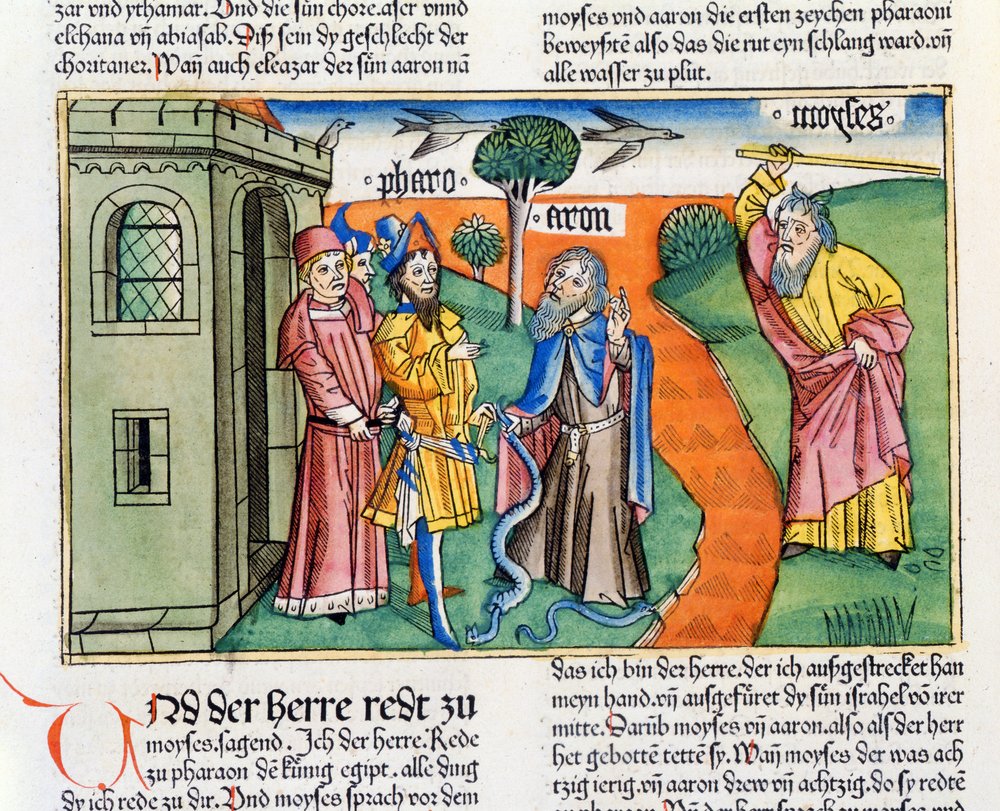 zar vnd ythamar. Vnd die sün chore. aser vnnd
elchana vñ abiasab. Diß sein dy geschlecht der
choritaner. Wañ auch eleazar der sün aaron nã
moyses vnd aaron die ersten zeychen pharaoni
beweyßtẽ also das die rut eyn schlang ward. vñ
alle wasser zu plut.
moyses
pharo
aron
Vnd der herre redt zu
moyses. sagend. Ich der herre. Rede
zu pharaon dẽ künig egipt. alle ding
dy ich rede zu dir. Vnd moyses sprach vor dem
das ich bin der herre. der ich außgestrecket han
meyn hand. vñ ausgefüret dy sün israhel võ irer
mitte. Darüb moyses vñ aaron. also als der herr
het gebottẽ tettẽ sy. Wañ moyses der was ach
tzig ierig. vñ aaron drew vñ achtzig. do sy redtẽ